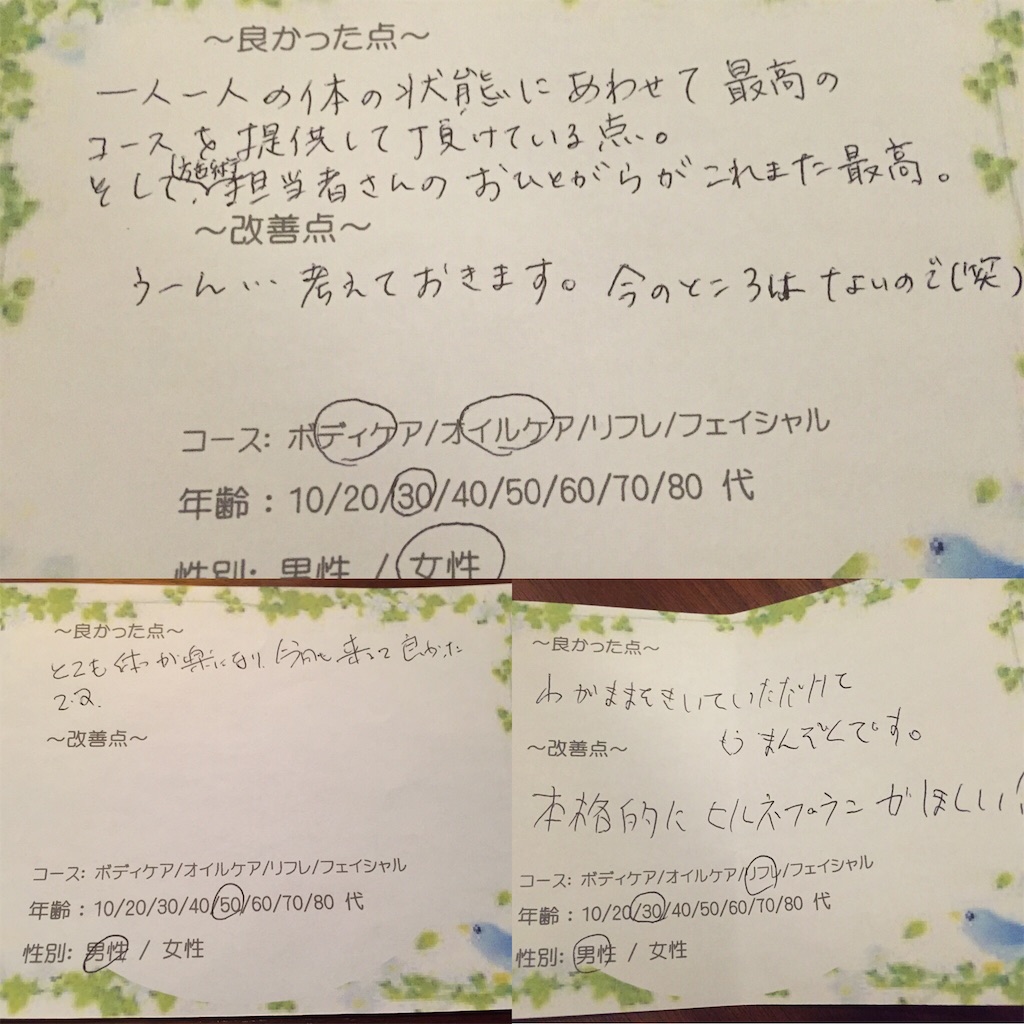 ～良かった点～
一人一人の体の状態にあわせて最高の
コースを提供して頂けている点。
そして、施術担当者さんのおひとがらがこれまた最高。
～改善点～
うーん… 考えておきます。今のところはないので(笑)
コース: ボディケア/オイルケア/リフレ/フェイシャル
年齢: 10/20/30/40/50/60/70/80 代
性別: 男性 / 女性
～良かった点～
とても体が楽になり、今日も来って良かった
です。
～改善点～
コース: ボディケア/オイルケア/リフレ/フェイシャル
年齢: 10/20/30/40/50/60/70/80 代
性別: 男性 / 女性
～良かった点～
わがままをきいていただけて
もうまんぞくです。
～改善点～
本格的にヒルネプランがほしい!
コース: ボディケア/オイルケア/リフレ/フェイシャル
年齢: 10/20/30/40/50/60/70/80 代
性別: 男性 / 女性